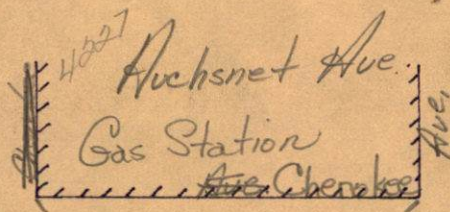 4227
Huchsnet Ave.
Gas Station
Ave Cherokee
Ave.